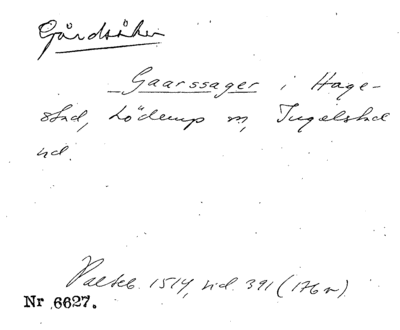 Gårdsåker
Gaarssager i Hage-
stad, Löderup sn, Ingelstad
hd.
Palteb. 1514, sid. 391 (176 r)
Nr 6627.